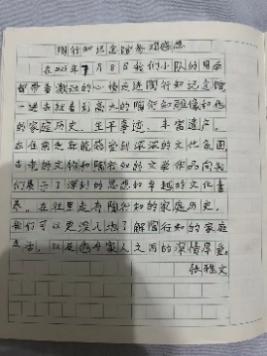 陶行知纪念馆参观感想
在2025年7月8日我们小队的目的
都带着激动的心情走进陶行知纪念馆
一进去就看到高大的陶行知雕像和他
的家庭历史、生平事迹、丰富遗产。
在任何走廊能感受到深深的文化氛围，
古老的文物和陶行知的文学作品向我
们展示了深刻的思想和卓越的文化素
养。在这里走在陶行知的家庭历史，
我们可以更深入地了解陶行知的家庭
生活，以及他与家人之间的深情厚爱。
张雅文